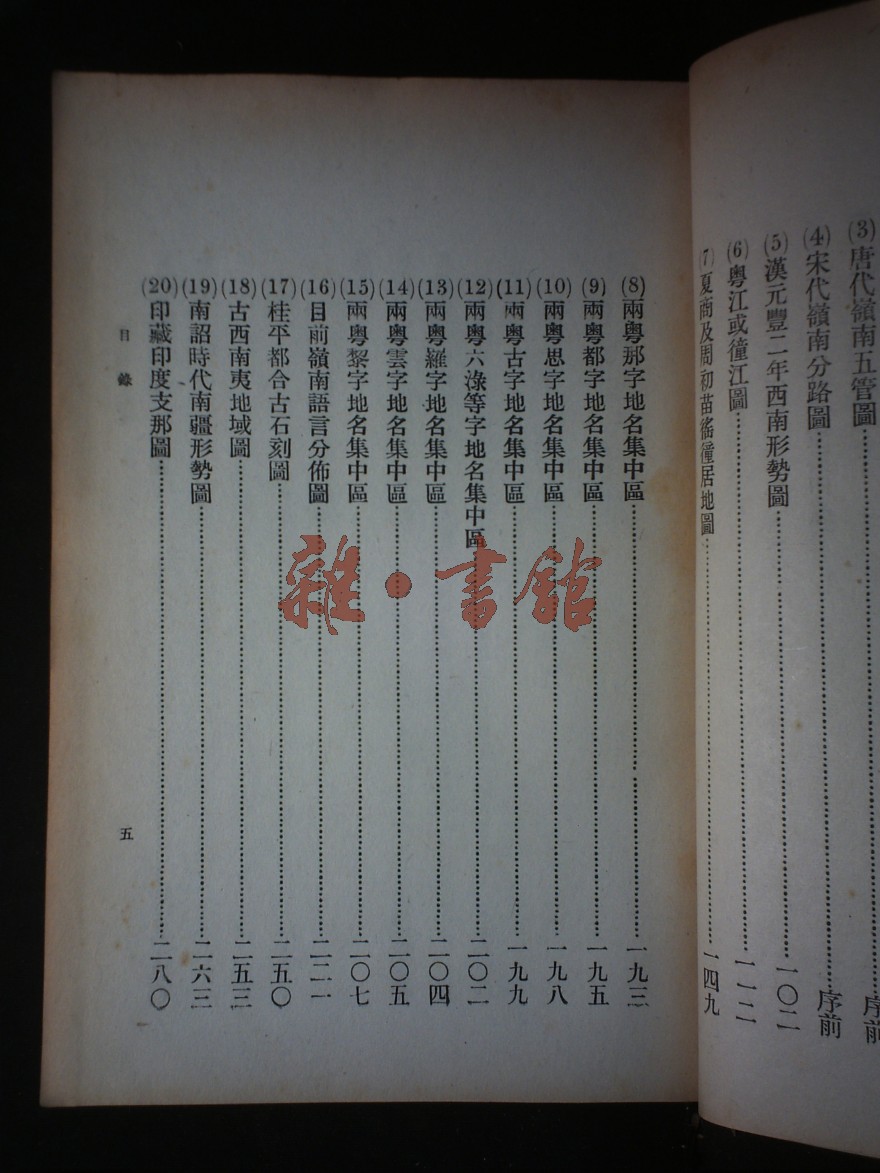 (3)唐代嶺南五管圖……序前
(4)宋代嶺南分路圖……序前
(5)漢元豐二年西南形勢圖……一〇二
(6)粵江或徸江圖……一一二
(7)夏商及周初苗徭徸居地圖……一四九
(8)兩粵那字地名集中區……一九三
(9)兩粵都字地名集中區……一九五
(10)兩粵思字地名集中區……一九八
(11)兩粵古字地名集中區……一九九
(12)兩粵六淥等字地名集中區……二〇二
(13)兩粵羅字地名集中區……二〇四
(14)兩粵雲字地名集中區……二〇五
(15)兩粵黎字地名集中區……二〇七
(16)目前嶺南語言分佈圖……二二一
(17)桂平都合古石刻圖……二五〇
(18)古西南夷地域圖……二五三
(19)南詔時代南疆形勢圖……二六三
(20)印藏印度支那圖……二八〇
目錄
五
雜·書館